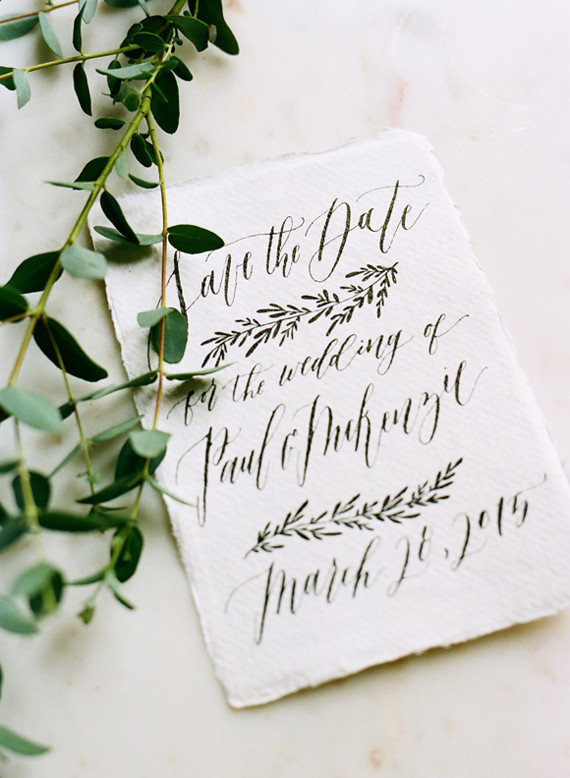 Save the Date
for the wedding of
Paul & Mckenzie
March 28, 2015